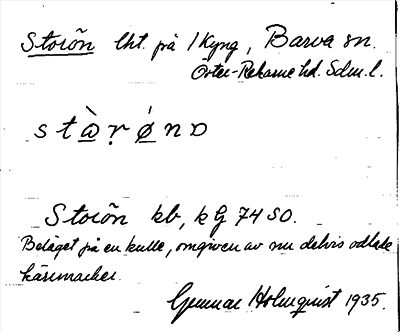 Storön lht. på 1 Kyng, Barva sn.
Öster-Rekarne hd. Sdm. l.
stàr̥ǿnɒ
Storön kb, kG 74 SO.
Beläget på en kulle, omgiven av nu delvis odlade
kärrmarker.
Gunnar Holmquist 1935.